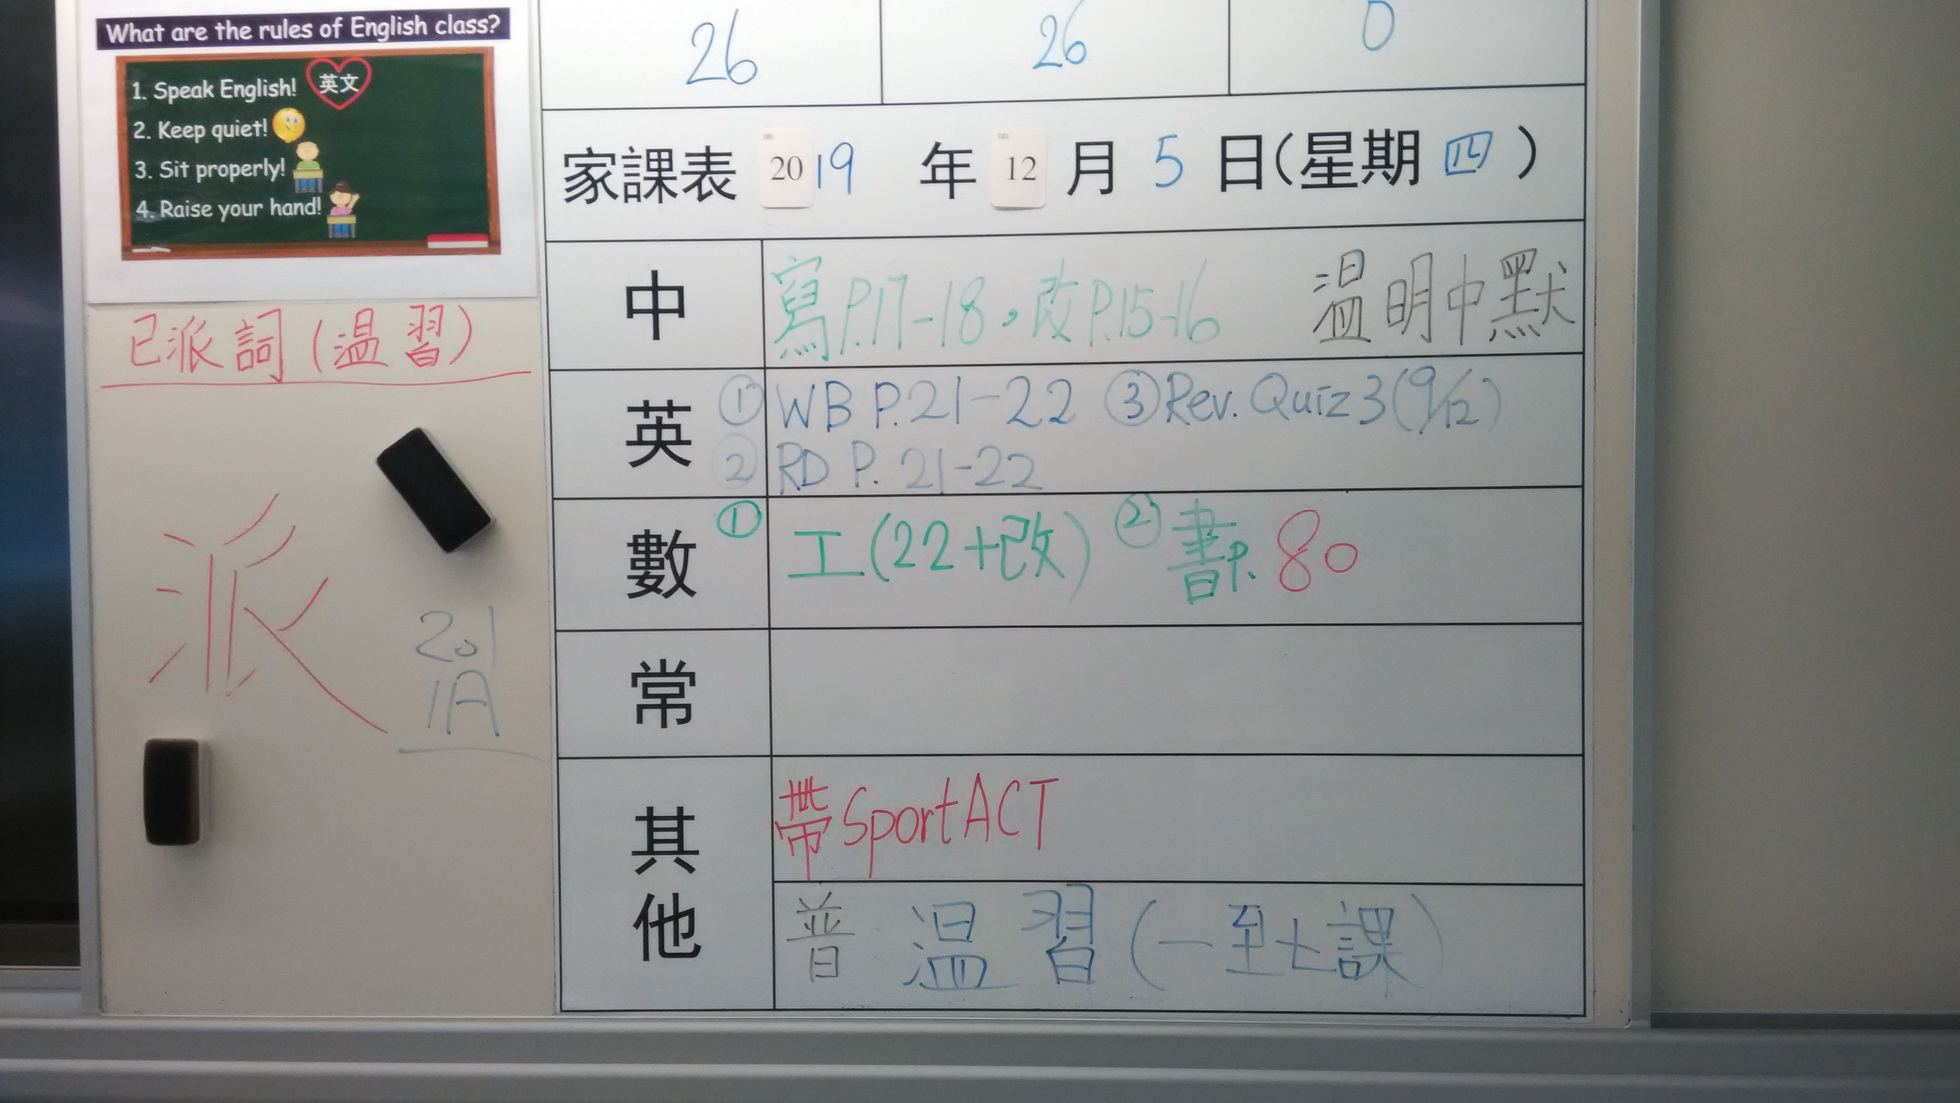 What are the rules of English class?
1. Speak English! 英文
2. Keep quiet!
3. Sit properly!
4. Raise your hand!
已派詞(温習)
派
201
1A
26 26 0
家課表 2019 年 12 月 5 日(星期四)
中 寫P.17-18,改P.15-16 温明中默
英 ① WB P.21-22 ③ Rev. Quiz 3 (9/12)
② RD P. 21-22
數 ① 工(22+改) ② 書P. 80
常
其他 帶SportACT
普 温習(一至七課)